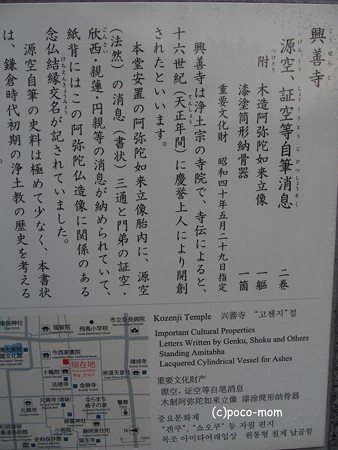 こうぜんじ
興善寺
げんくう しょうくうとう じひつしょうそく
源空、証空等自筆消息 二巻
つけたり
附 木造阿弥陀如来立像 一軀
漆塗筒形納骨器 一箇
重要文化財 昭和四十年五月二十九日指定
興善寺は浄土宗の寺院で、寺伝によると、
十六世紀(天正年間)に慶誉上人により開創
されたといいます。
本堂安置の阿弥陀如来立像胎内に、源空
(法然)の消息(書状)三通と門弟の証空・
欣西・親蓮・円親等の消息が納められていて、
紙背にはこの阿弥陀仏造像に関係のある
念仏結縁交名が記されていました。
源空自筆の史料は極めて少なく、本書状
は、鎌倉時代初期の浄土教の歴史を考える
Kozenji Temple 兴善寺 "고젠지"절
Important Cultural Properties
Letters Written by Genku, Shoku and Others
Standing Amitabha
Lacquered Cylindrical Vessel for Ashes
重要文化财产
源空、证空等自笔消息
木制阿弥陀如来立像 漆涂筒形纳骨器
중요문화재
"겐쿠", "쇼오쿠" 등 자필 편지
목조 아미타여래입상 원통형 칠제 납골함
现在地
福智院
飛鳥小学校
今西家書院
十輪院
法徳寺
金躰寺
元興寺
ならまち格子の家
史料保存館
(c)poco-mom